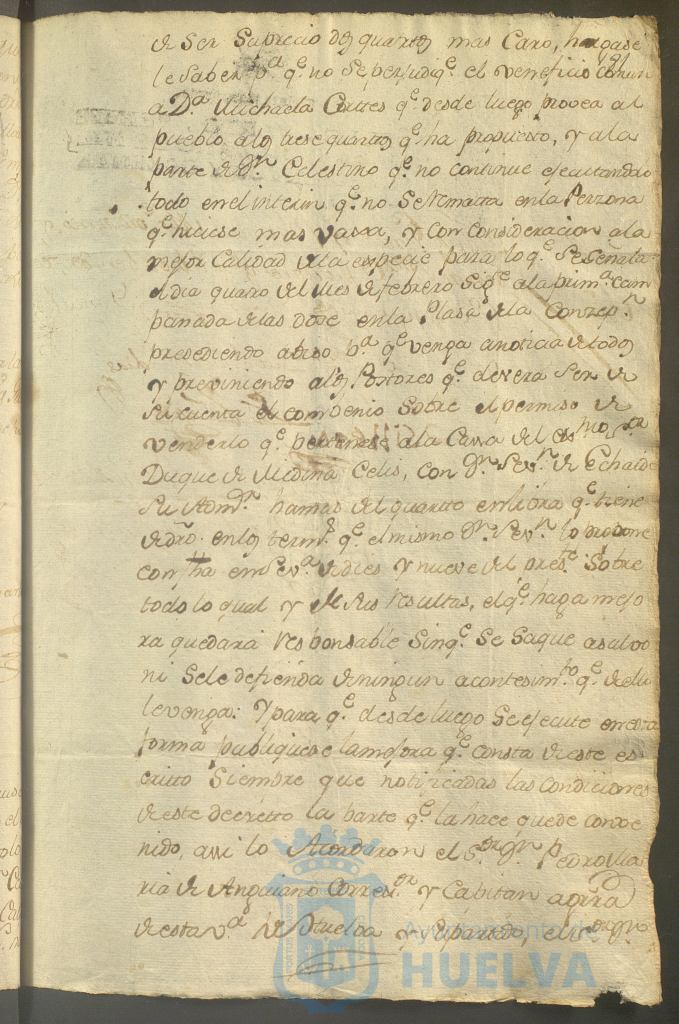 de Ser Suprecio dos quartos mas Caro, hagase
le Saber pª. qᵉ. no Seperjudiqᵉ. el veneficio comun
a Dª. Michaela Cortes qᵉ. desde luego provea al
pueblo a los trese quartos qᵉ. ha propuesto, y a la
parte de Dⁿ. Celestino qᵉ. no continue ejecutandolo
todo en el interin qᵉ. no Se Rematta en la Perzona
qᵉ. hiciese mas vaxa, y con consideracion a la
mejor Calidad de la especie para lo qᵉ. Se Señala
el dia quatro del Mes de febrero Sigᵉ. a la primª. cam
panada de las Doce en la Plasa de la Conzepⁿ.
presediendo abiso pª. qᵉ. venga a noticia de todos
y previniendo a los Postores qᵉ. devera Ser de
Su cuenta el combenio Sobre el permiso de
venderlo qᵉ. pertenese a la Cassa del Exᵐᵒ. Sᵒʳ
Duque de Medina Celis, con Dⁿ. Sevⁿ. de Echaide
Su Admᵒʳ. hamas del quartto en libra qᵉ. tiene
de dro. en los termˢ. qᵉ. el mismo Dⁿ. Sevⁿ. lo propone
con fha en Sevª. de dies y nueve del presᵗᵉ. Sobre
todo lo qual y de Sus resultas, el qᵉ. haga mejo
ra quedará responsable Sinqᵉ. Se Saque a salvo
ni Sele defienda de ningun acontesimᵗᵒ. qᵉ. de ello
le venga: Y para qᵉ. desde luego Se ejecute en esta
forma publiquese la mejora qᵉ. consta de este es
critto Siempre que notificadas las condiciones
de este decretto la parte qᵉ. la hace quede conve
nido, assi lo Acordaron el Sᵒʳ Dⁿ. Pedro Ma
ria de Anguiano Corresᵒʳ y Capitan a grã
de esta vª. de Huelva y Su partido, el Sᵒʳ Dⁿ.
Ayuntamiento de
HUELVA